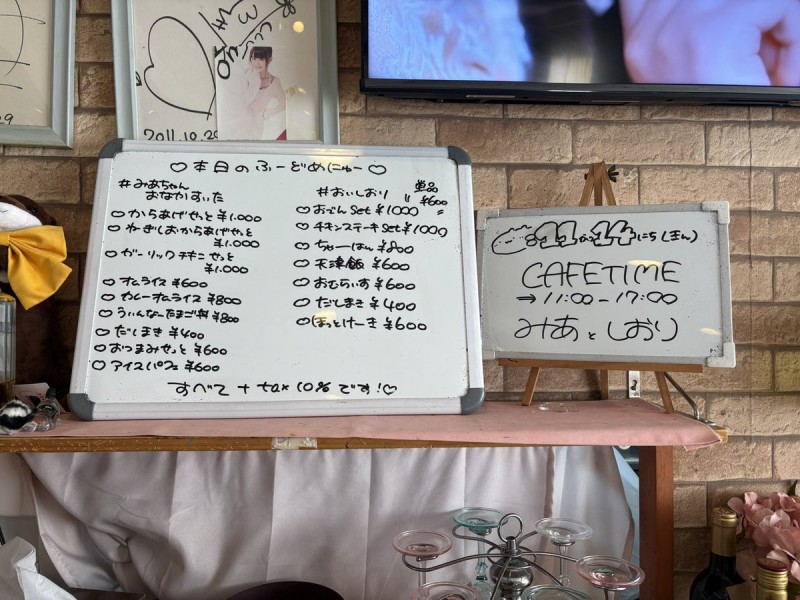 2011.10.29
♡本日のふーどめにゅー♡
#みあちゃん
おなかすいた
♡からあげせっと ¥1.000
♡ねぎしおからあげせっと
¥1.000
♡ガーリックチキンせっと
¥1.000
♡オムライス ¥600
♡カレーオムライス ¥800
♡ういんなーたまご丼 ¥800
♡だしまき ¥400
♡おつまみせっと ¥600
♡アイスパフェ ¥600
#おいしおり
単品
¥600
♡おでんSet ¥1000
♡チキンステーキSet ¥1000
♡ちゃーはん ¥800
♡天津飯 ¥600
♡おむらいす ¥600
♡だしまき ¥400
♡ほっとけーき ¥600
すべて + tax 10% です!♡
11 14にち(まん)
CAFETIME
→ 11:00-17:00
みあ と しおり